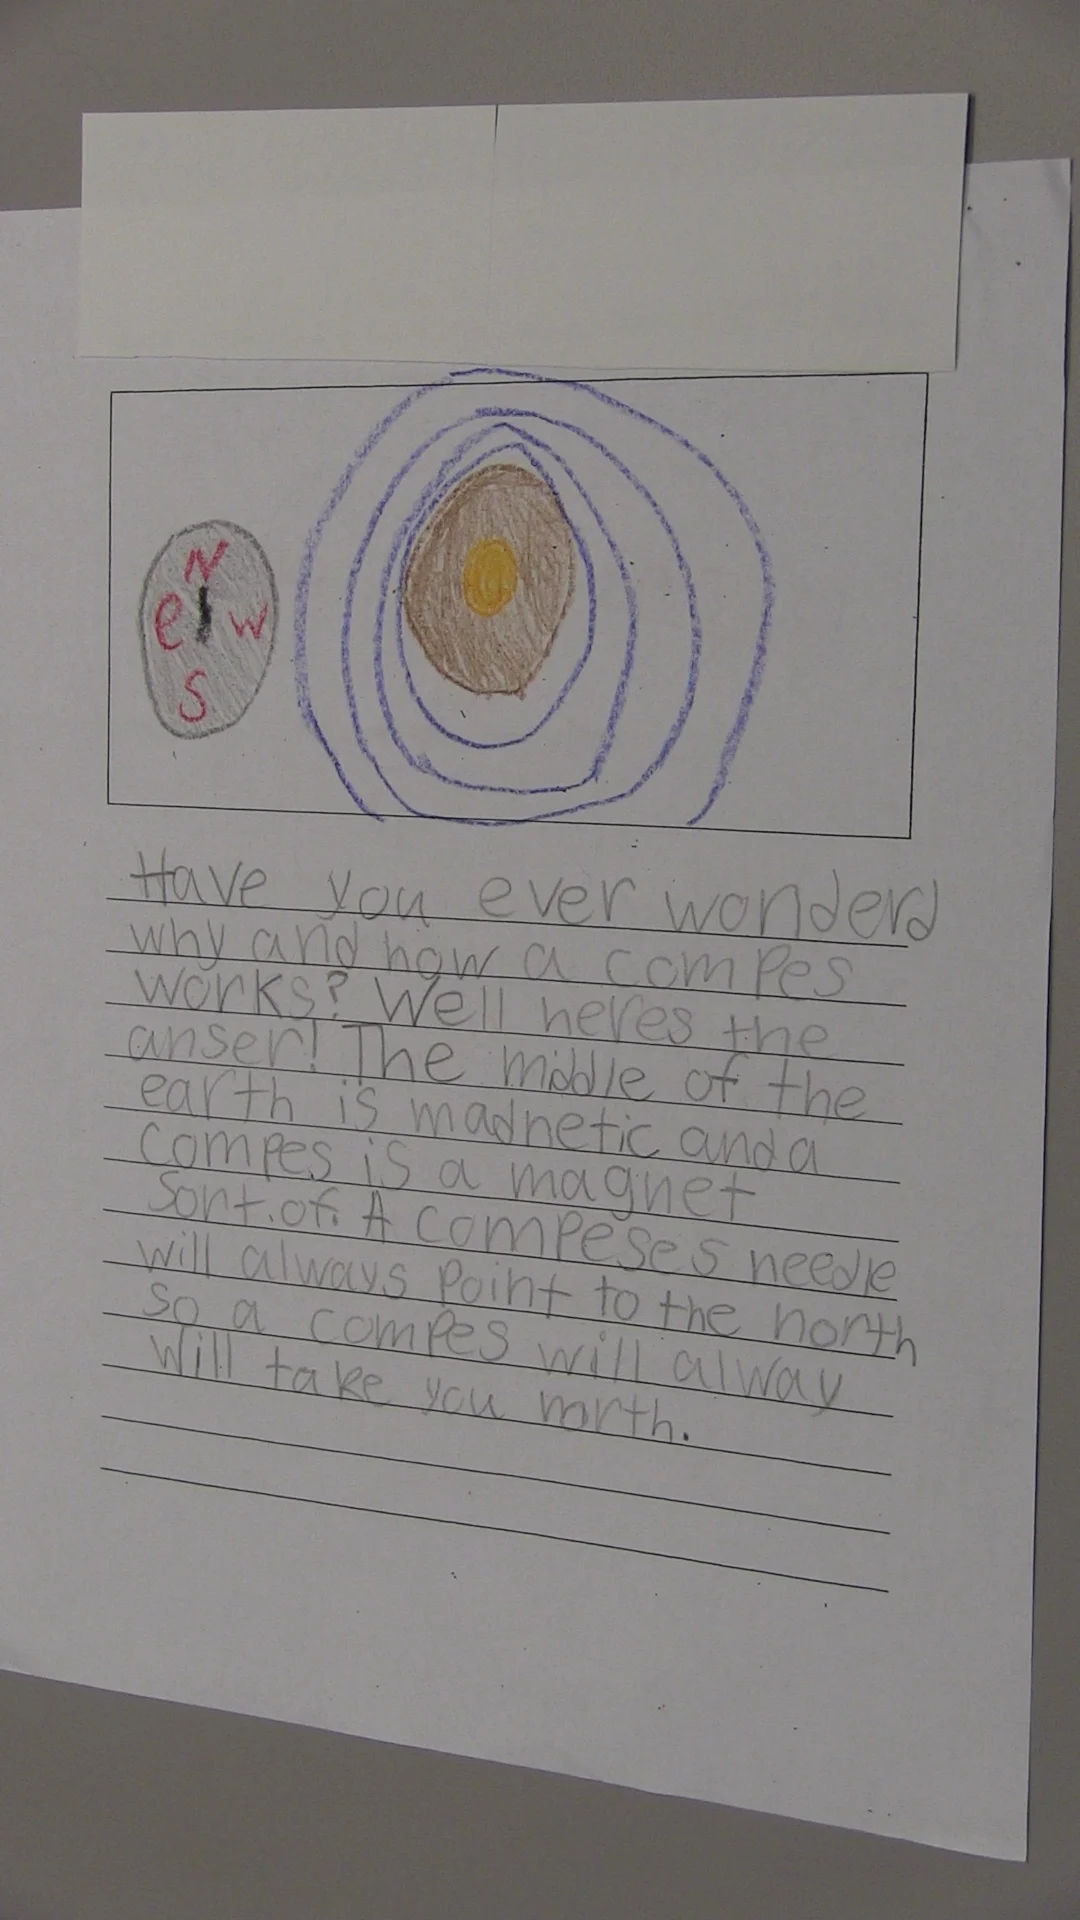 N
e W
S
Have you ever wonderd
why and how a compes
works? Well heres the
anser! The middle of the
earth is madnetic and a
compes is a magnet
sort.of. A compeses needle
will always point to the north
so a compes will alway
will take you north.